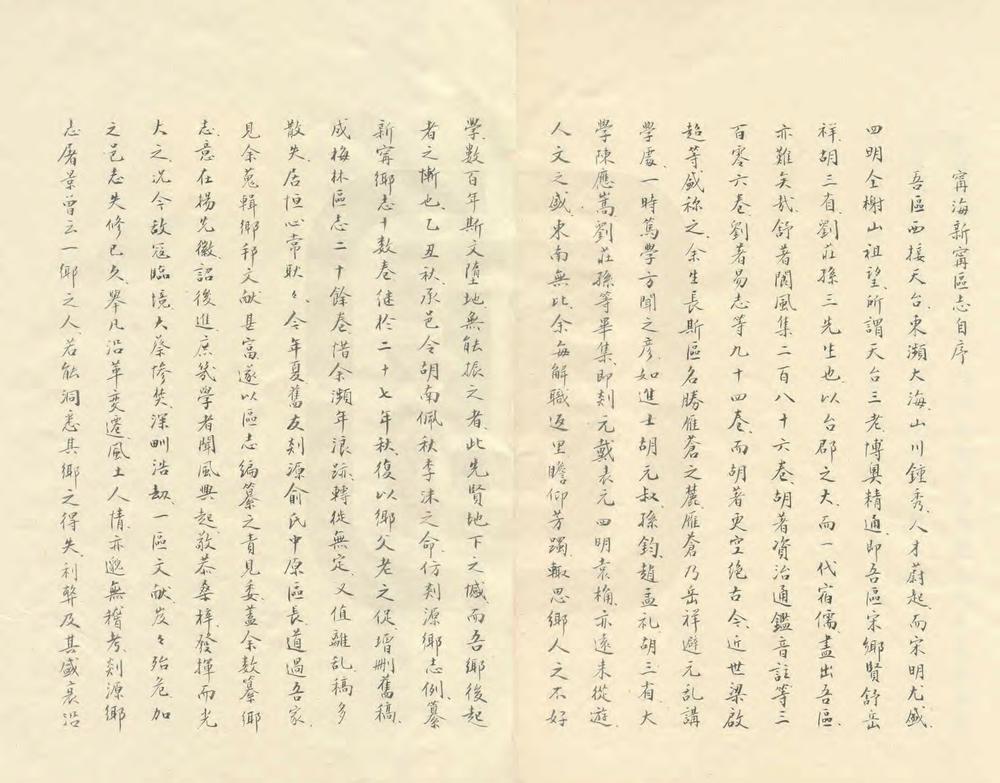 甯海新甯區志自序
吾區西接天台、東瀕大海、山川鍾秀、人才蔚起、而宋明尤盛、
四明全榭山祖望、所謂天台三老、博奧精通、即吾區宋鄉賢舒岳
祥、胡三省、劉莊孫三先生也、以台郡之大、而一代宿儒、盡出吾區、
亦難矣哉、舒著閬風集二百八十六卷、胡著資治通鑑音註等三
百零六卷、劉著易志等九十四卷、而胡著更空絕古今、近世梁啟
超等盛祢之、余生長斯區、名勝雁蒼之麓、雁蒼乃岳祥避元亂講
學處、一時篤學方聞之彥、如進士胡元叔、孫鈞、趙孟礼、胡三省、大
學陳應嵩、劉莊孫等畢集、即剡元戴表元、四明袁桷、亦遠来從遊、
人文之盛、東南無比、余每解職返里、瞻仰芳躅、輒思鄉人之不好
學、數百年斯文墮地、無能振之者、此先賢地下之憾、而吾鄉後起
者之慚也、乙丑秋、承邑令胡南佩、秋李洣之命、仿剡源鄉志例、纂
新甯鄉志十數卷、継於二十七年秋、復以鄉父老之促、增刪舊稿、
成梅林區志二十餘卷、惜余瀕年浪跡、轉徙無定、又值離乱、稿多
散失、居恒心常耿々、今年夏、舊友剡源俞氏中原區長、道過吾家、
見余蒐輯鄉邦文献甚富、遂以區志編纂之責見委、蓋余数纂鄉
志、意在楊先徽、詔後進、庶幾學者聞風興起、敬恭桑梓、發揮而光
大之、况今敌寇臨境、大黎慘焚、深甽浩劫、一區文献、岌々殆危、加
之邑志失修已久、舉凡沿革变遷、風土人情、亦邈無稽考、剡源鄉
志屠景曾云、一鄉之人、若能洞悉其鄉之得失、利弊、及其盛衰沿